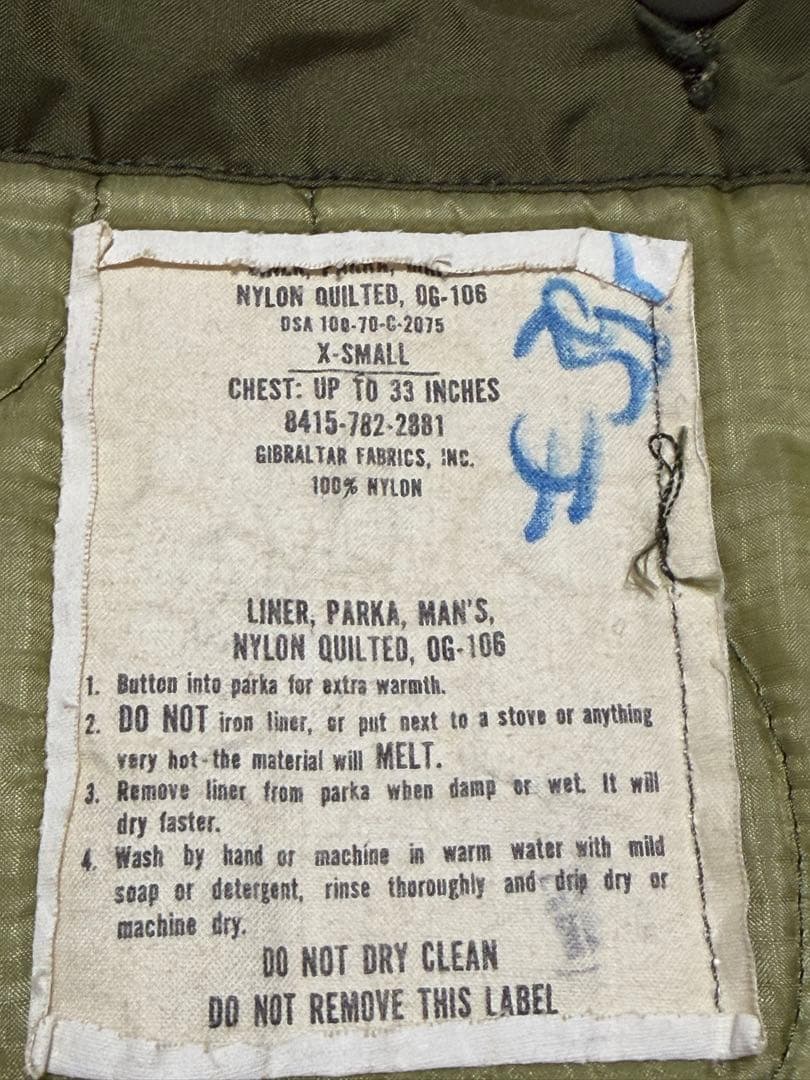 LINER, PARKA,
NYLON QUILTED, OG-106
DSA 100-70-C-2075
X-SMALL
CHEST: UP TO 33 INCHES
8415-782-2881
GIBRALTAR FABRICS, INC.
100% NYLON
LINER, PARKA, MAN'S,
NYLON QUILTED, OG-106
1. Button into parka for extra warmth.
2. DO NOT iron liner, or put next to a stove or anything
very hot-the material will MELT.
3. Remove liner from parka when damp or wet. It will
dry faster.
4. Wash by hand or machine in warm water with mild
soap or detergent, rinse thoroughly and drip dry or
machine dry.
DO NOT DRY CLEAN
DO NOT REMOVE THIS LABEL